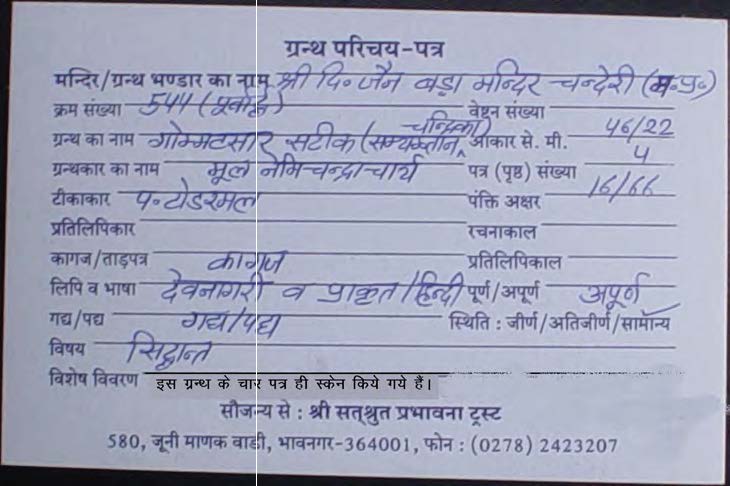 ग्रन्थ परिचय-पत्र
मन्दिर/ग्रन्थ भण्डार का नाम श्री दि॰ जैन बड़ा मन्दिर चन्देरी (म॰प्र॰)
क्रम संख्या 544 (पूर्वार्द्ध) वेष्टन संख्या
ग्रन्थ का नाम गोम्मटसार सटीक (सम्यग्ज्ञान चन्द्रिका) आकार से. मी. 46/22
ग्रन्थकार का नाम मूल नेमिचन्द्राचार्य पत्र (पृष्ठ) संख्या 4
टीकाकार पं॰ टोडरमल पंक्ति अक्षर 16/66
प्रतिलिपिकार रचनाकाल
कागज/ताड़पत्र कागज प्रतिलिपिकाल
लिपि व भाषा देवनागरी व प्राकृत/हिन्दी पूर्ण/अपूर्ण अपूर्ण
गद्य/पद्य गद्य/पद्य स्थिति : जीर्ण/अतिजीर्ण/सामान्य
विषय सिद्धान्त
विशेष विवरण इस ग्रन्थ के चार पत्र ही स्केन किये गये हैं।
सौजन्य से : श्री सत्श्रुत प्रभावना ट्रस्ट
580, जूनी माणक वाडी, भावनगर-364001, फोन : (0278) 2423207